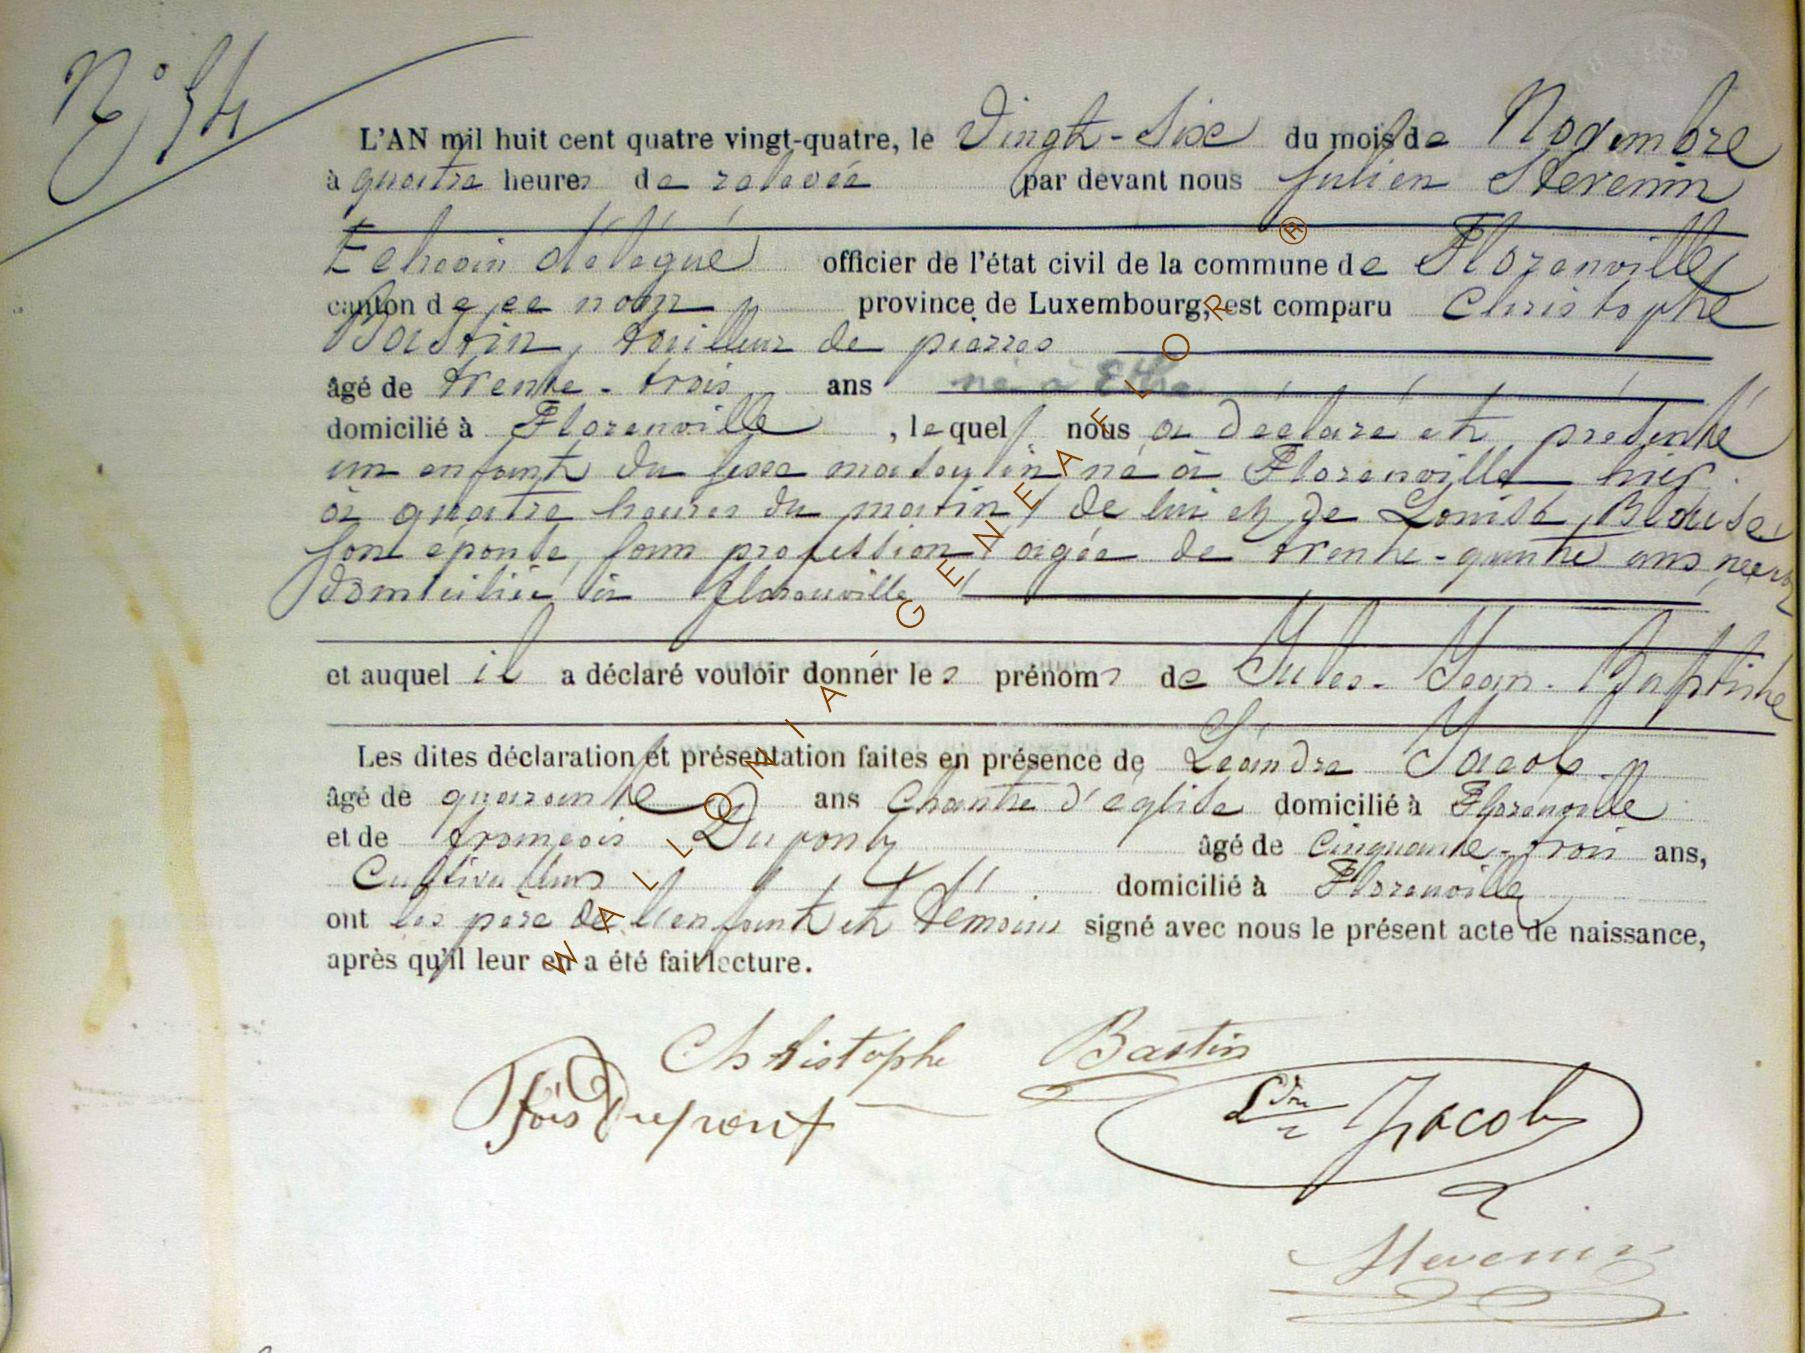 N° 54
L'AN mil huit cent quatre vingt-quatre, le Vingt-Six du mois de Novembre
à quatre heures de relevée par devant nous Julien Stevenin
Echevin délégué officier de l'état civil de la commune de Florenville
canton de ce nom province de Luxembourg, est comparu Christophe
Bastin, tailleur de pierres
âgé de trente-trois ans né à Ethe
domicilié à Florenville, lequel nous a déclaré et présenté
un enfant du sexe masculin né à Florenville hier
à quatre heures du matin, de lui et de Louise
son épouse, sans profession, agée de trente-quatre ans
domiciliée à florenville
et auquel il a déclaré vouloir donner les prénoms de Jules-Jean-Baptiste
Les dites déclaration et présentation faites en présence de Léandre Jacob
âgé de quarante ans Chantre d'eglise domicilié à Florenville
et de françois Dupont âgé de Cinquante-trois ans,
Cultivateurs domicilié à Florenville
ont les père de l'enfant et témoins signé avec nous le présent acte de naissance,
après qu'il leur en a été fait lecture.
Christophe Bastin
fois Dupont
Ldre Jacob
Stevenin
WALLONIA GENEAFLOR ®